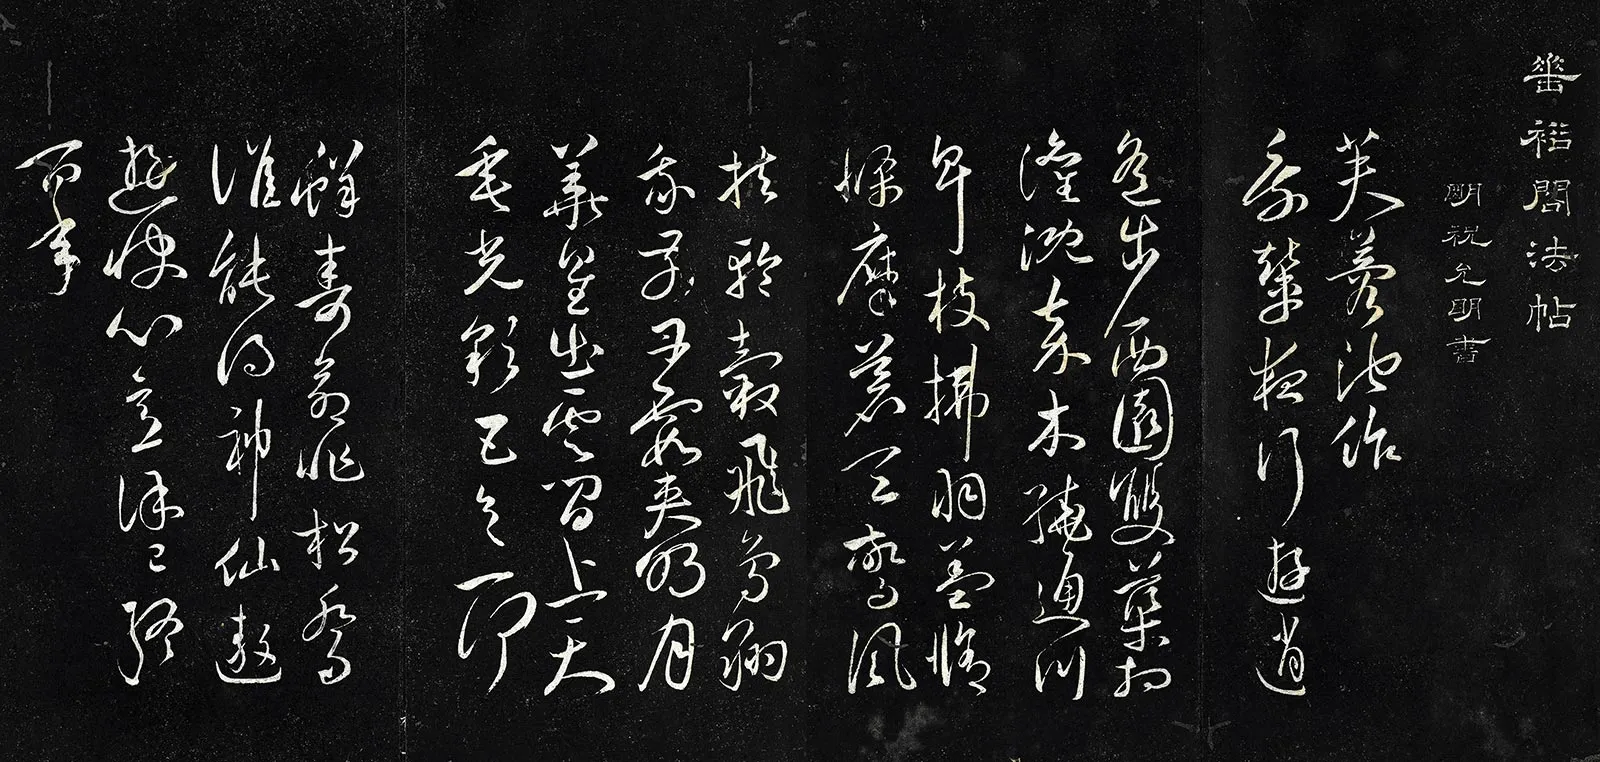 垂裕閣法帖
明祝允明書
芙蓉池作
乘輦夜行遊逍
遙步西園雙渠相
灌溉嘉木繞通川
卑枝拂羽蓋脩
條摩蒼天驚風
扶輪轂飛鳥翔
我前丹霞夾明月
華星出雲間上天
垂光彩五色一何
鮮壽命非松喬
誰能得神仙遨
遊快心意保己終
百年